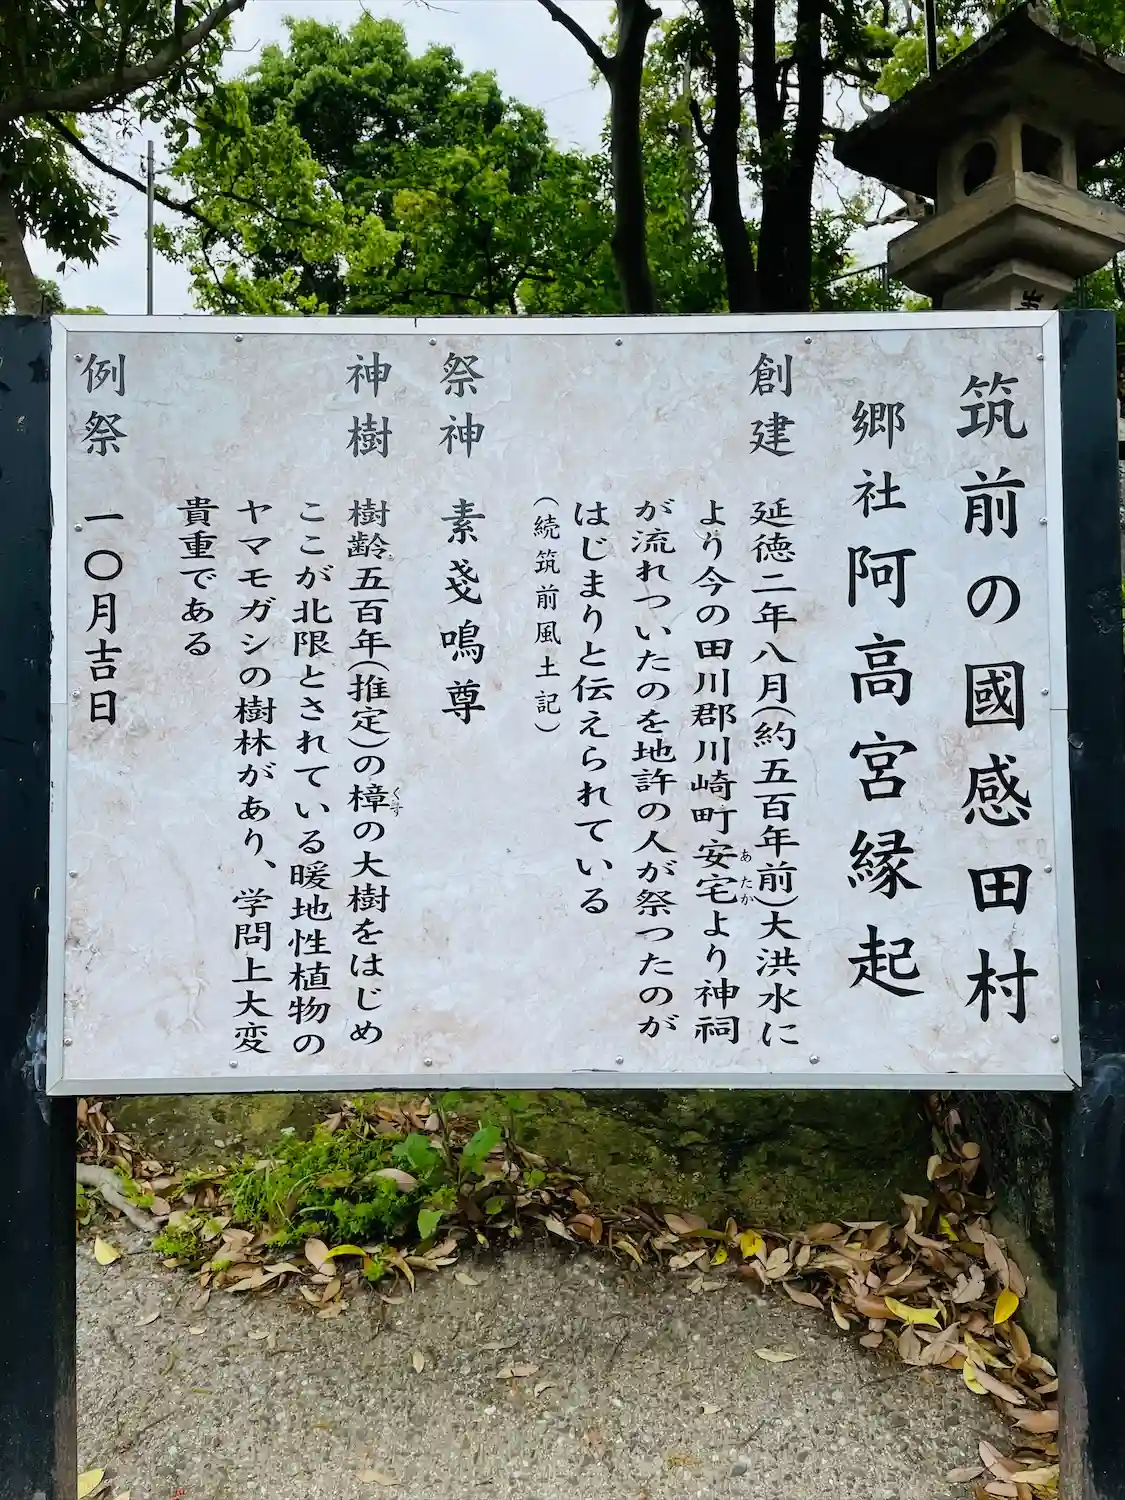 筑前の國感田村
郷社阿高宮縁起
創建 延徳二年八月(約五百年前)大洪水に
より今の田川郡川崎町安宅より神祠
あたか
が流れついたのを地許の人が祭つたのが
はじまりと伝えられている
(続筑前風土記)
祭神 素戔鳴尊
神樹 樹齢五百年(推定)の樟の大樹をはじめ
くす
ここが北限とされている暖地性植物の
ヤマモガシの樹林があり、学問上大変
貴重である
例祭 一〇月吉日